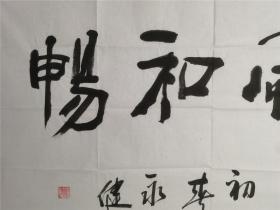 和暢
初春永健